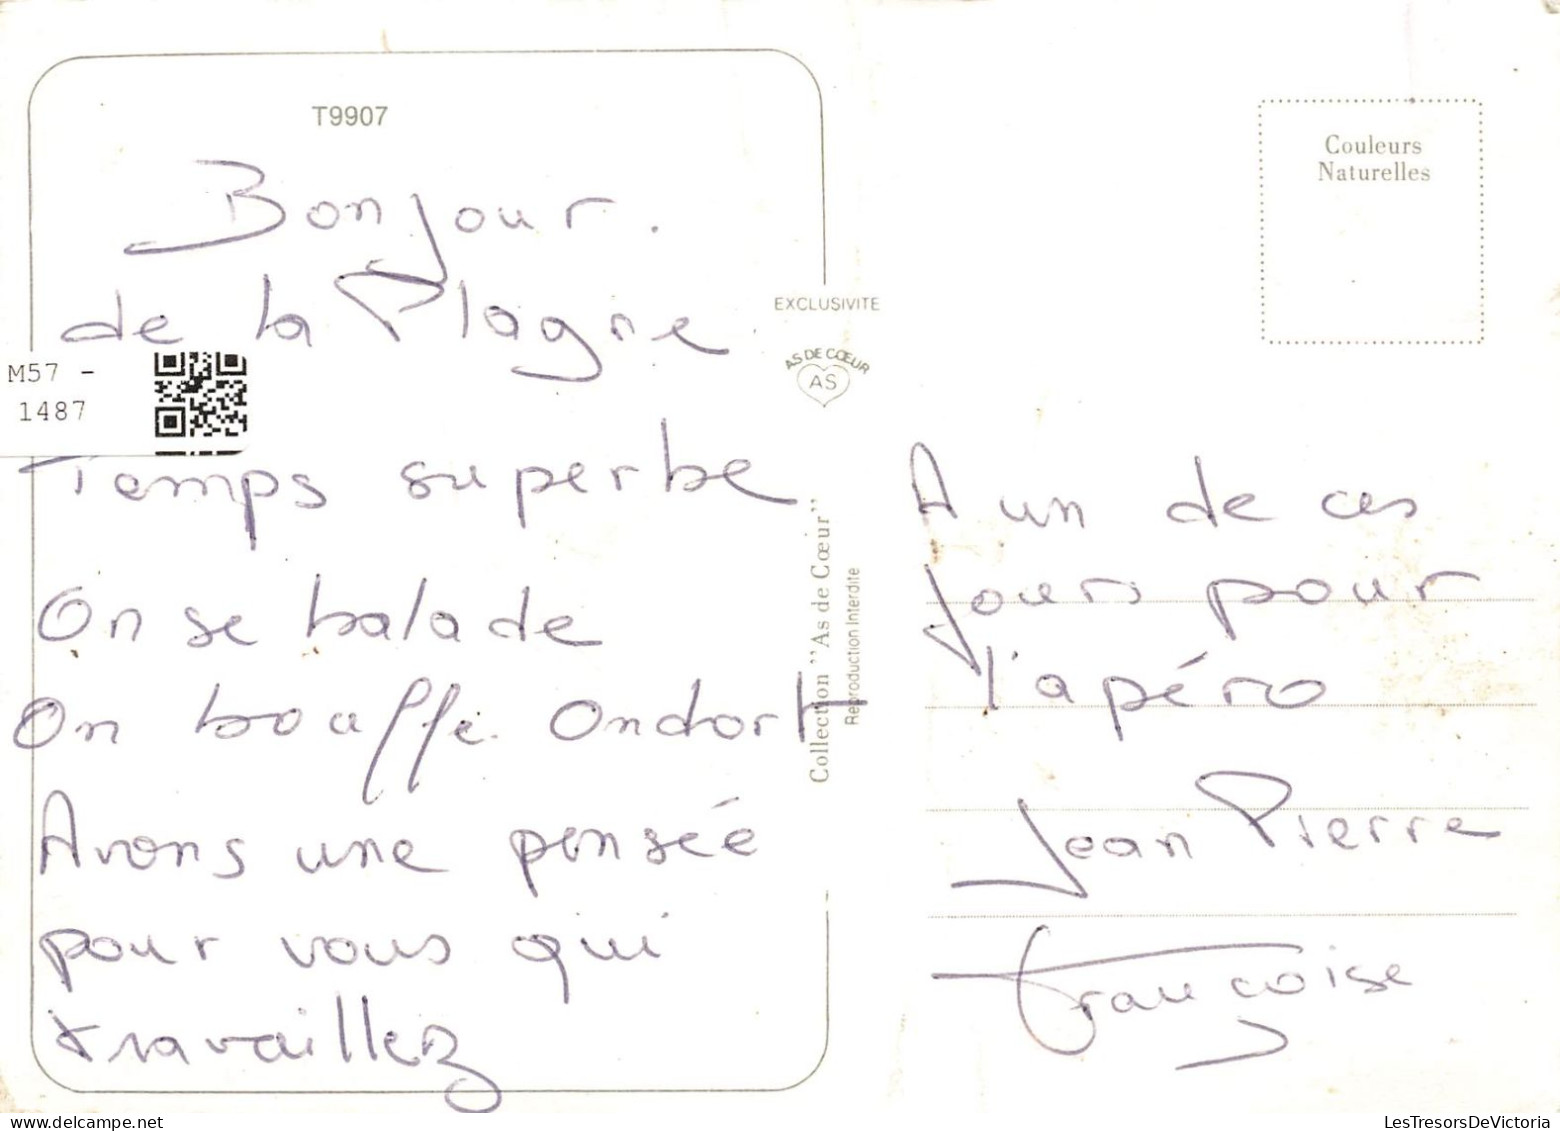 T9907
Bonjour.
de la Plagne
M57 -
1487
Temps superbe
On se balade
On bouffe. On dort
Avons une pensée
pour vous qui
travaillez
EXCLUSIVITE
AS DE CŒUR
AS
Collection "As de Cœur"
Reproduction Interdite
Couleurs
Naturelles
A un de ces
jours pour
l'apéro
Jean Pierre
Françoise
delcampe.net
LesTresorsDeVictoria